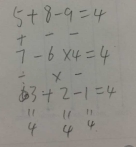 5+8-9=4
+ - -
7-6×4=4
÷ × -
3+2-1=4
= = =
4 4 4